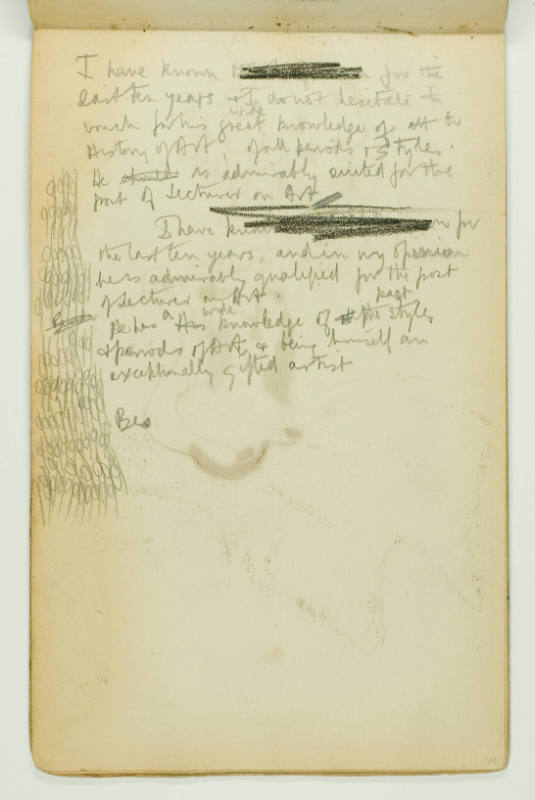 I have known for the
last ten years & I do not hesitate to
wide
vouch for his great knowledge of all the
History of Art of all periods & styles.
He is admirably suited for the
post of Lecturer on Art
I have known for
the last ten years, and in my opinion
he is admirably qualified for the post
of Lecturer on Art.
a wide past
He has His knowledge of the styles
& periods of Art & being himself an
exceptionally gifted artist
Bes